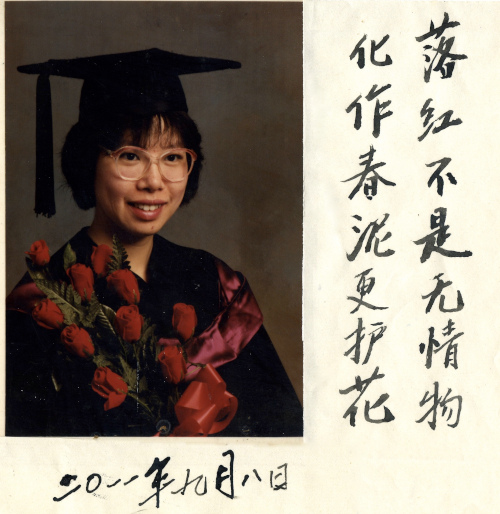 落红不是无情物
化作春泥更护花
二〇一一年九月八日